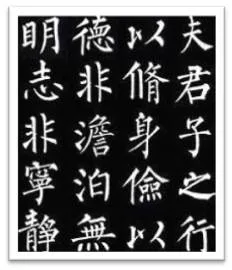 夫君子之行
以脩身儉以
德非澹泊無
明志非寧靜